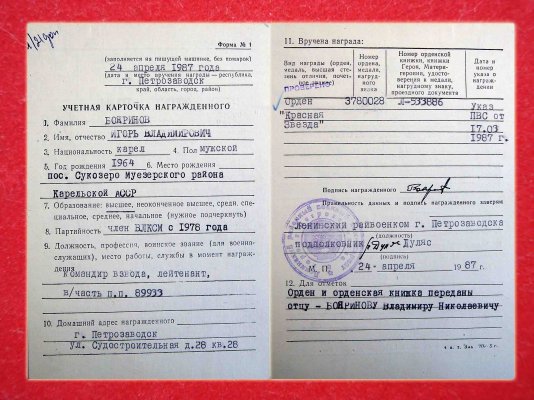 Форма № 1
(заполняется на пишущей машинке, без помарок)
24 апреля 1987 года
(дата и место вручения награды — республика,
г. Петрозаводск
край, область, город, район)
УЧЕТНАЯ КАРТОЧКА НАГРАЖДЕННОГО
1. Фамилия БОЯРИНОВ
2. Имя, отчество ИГОРЬ ВЛАДИМИРОВИЧ
3. Национальность карел 4. Пол мужской
5. Год рождения 1964 6. Место рождения
пос. Сукозеро Муезерского района
Карельской АССР
7. Образование: высшее, неоконченное высшее, среднее специальное, среднее, начальное (нужное подчеркнуть)
8. Партийность член ВЛКСМ с 1978 года
9. Должность, профессия, воинское звание (для военно-
служащих), место работы, службы в момент награж-
дения
командир взвода, лейтенант,
в/часть п.п. 89933
10. Домашний адрес награжденного
г. Петрозаводск
ул. Судостроительная д.28 кв.28
11. Вручена награда:
Вид награды (орден, медаль, высшая степень отличия, почетное звание)
Номер ордена, медали, нагрудного знака
Номер орденской книжки, книжки Героя, Матери-героини, удостоверения к медали, нагрудному знаку, проездного документа
Дата и номер указа о награждении
ПРОВЕРЕНО
Орден 3780028 Л-533886 Указ
"Красная ПВС от
Звезда" 17.03
1987 г.
Подпись награжденного
Правильность данных и подпись награжденного заверяю
Ленинский райвоенком г. Петрозаводска
(должность)
подполковник Дуляс
(подпись)
М. П. 24 апреля 1987 г.
12. Для отметок
Орден и орденская книжка переданы
отцу - БОЯРИНОВУ Владимиру Николаевичу